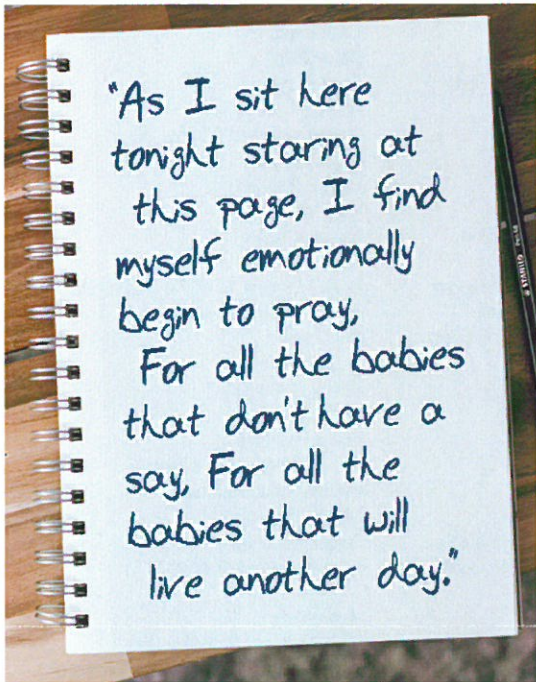 "As I sit here
tonight staring at
this page, I find
myself emotionally
begin to pray,
For all the babies
that don't have a
say, For all the
babies that will
live another day."